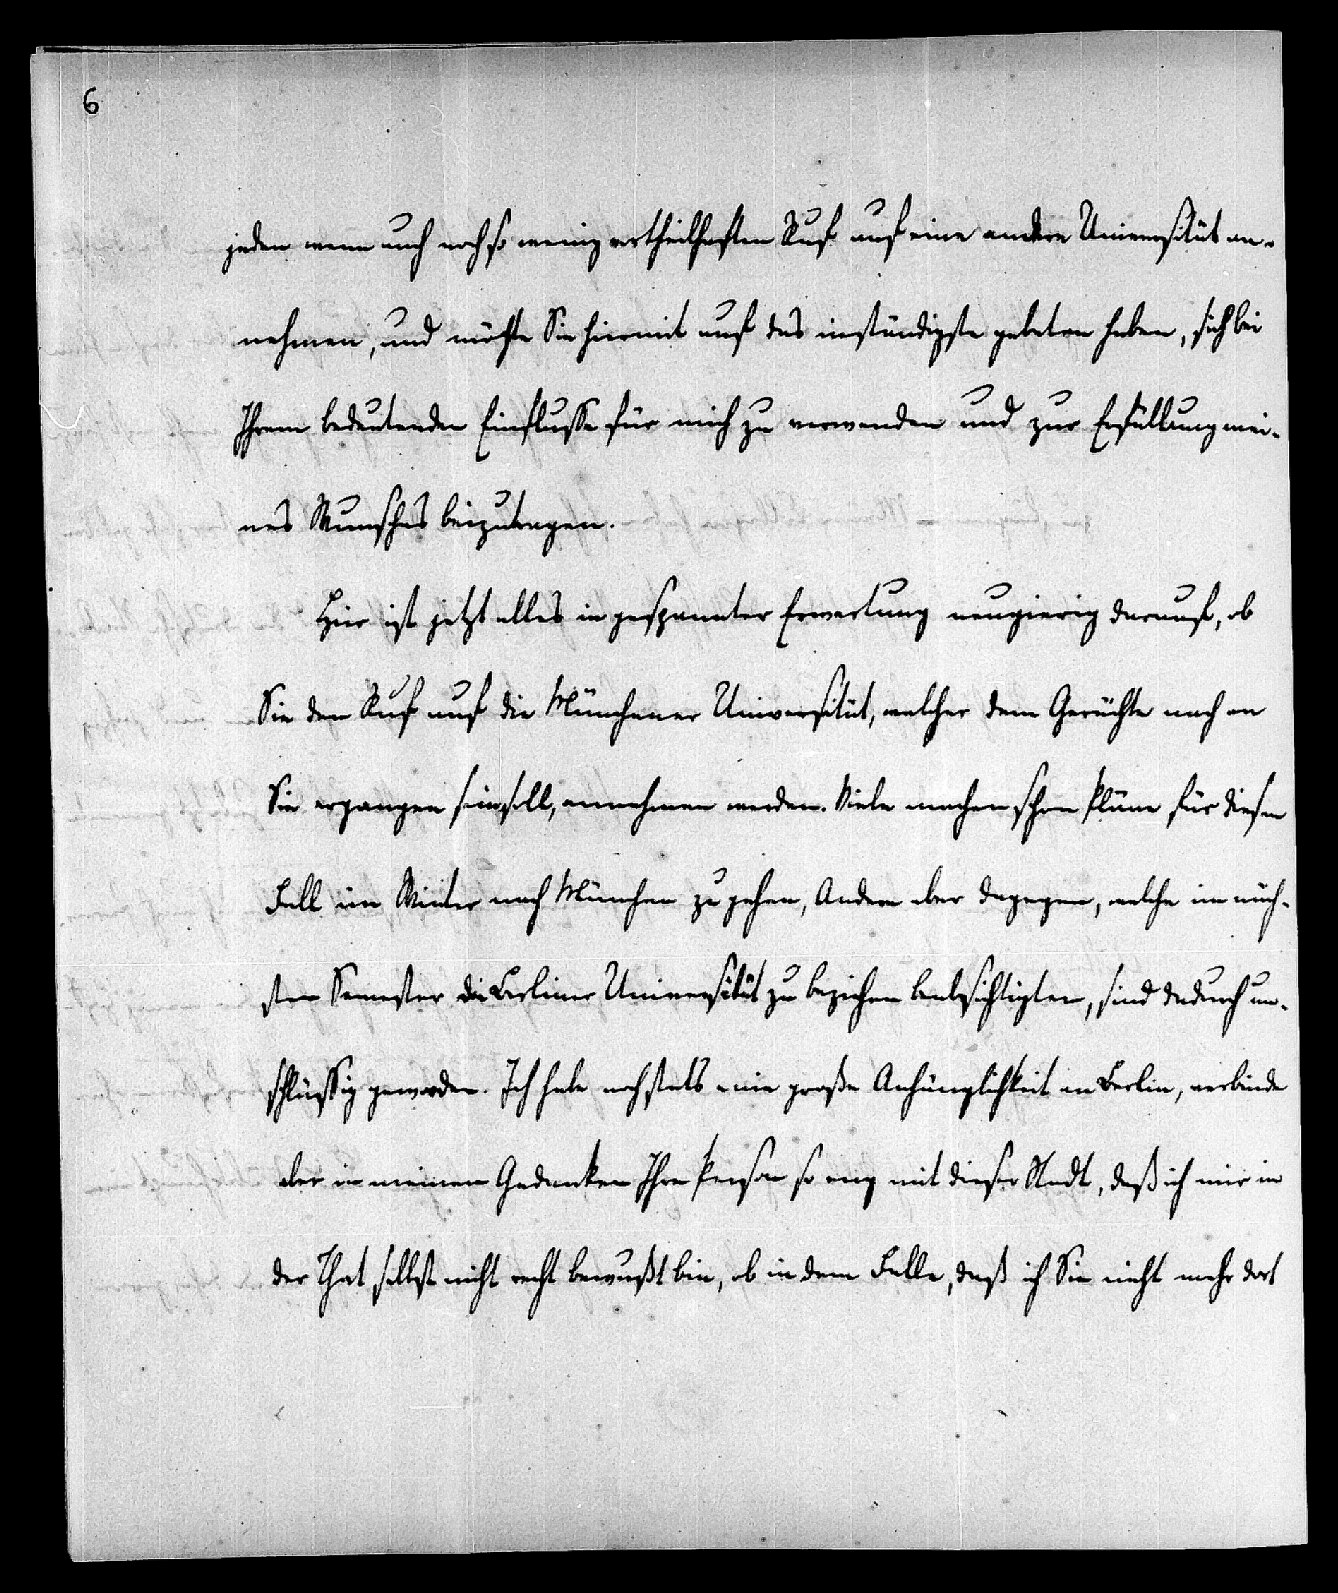 6
jeden wenn auch noch so wenig vortheilhaften Ruf auf eine andere Universität an-
nehmen, und möchte Sie hiermit auf das inständigste gebeten haben, sich bei
Ihrem bedeutenden Einflusse für mich zu verwenden und zur Erfüllung mei-
nes Wunsches beizutragen.
Hier ist jetzt alles in gespannter Erwartung neugierig darauf, ob
Sie den Ruf auf die Münchener Universität, welcher dem Gerüchte nach an
Sie ergangen sein soll, annehmen werden. Viele machen schon Pläne für diesen
Fall im Winter nach München zu gehen, Andere aber dagegen, welche im näch-
sten Semester die Berliner Universität zu beziehen beabsichtigten, sind dadurch un-
schlüssig geworden. Ich habe noch stets eine große Anhänglichkeit an Berlin, verbinde
aber in meinen Gedanken Ihre Person so eng mit dieser Stadt, daß ich mir in
der That selbst nicht recht bewußt bin, ob in dem Falle, daß ich Sie nicht mehr dort